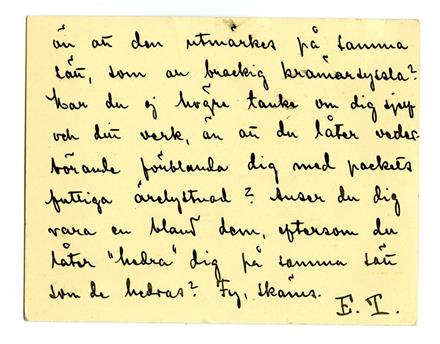 än att den utmärkes på samma
sätt, som en brackig kramarsyssla?
Har du ej högre tanke om dig sjelf
och ditt verk, än att du låter veder-
börande förblanda dig med packets
futtiga ärelystnad? Anser du dig
vara en bland dem, eftersom du
låter "hedra" dig på samma sätt
som de hedras? Fy, skäms.
E. T.